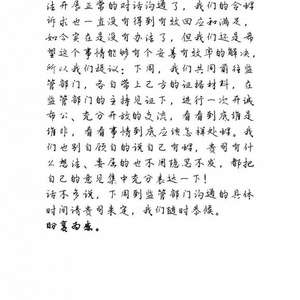 法开展正常的对话沟通了，我们的合理
诉求也一直没有得到有效回应和满足，
如今实在是没有办法了，但我们还是希
望这个事情能够有个妥善有效率的解决，
所以我们提议：下周，我们共同前往监
管部门，各自带上己方的证据材料，在
监管部门的主持见证下，进行一次开诚
布公、充分开放的交流，看看到底谁是
谁非，看看事情到底应该怎样处理，我
们也别自顾自的说自己有理，贵司有什
么想法、委屈的也不用隐忍不发，都把
自己的意见集中充分表达一下！
话不多说，下周到监管部门沟通的具体
时间请贵司来定，我们随时恭候。
盼复为感。